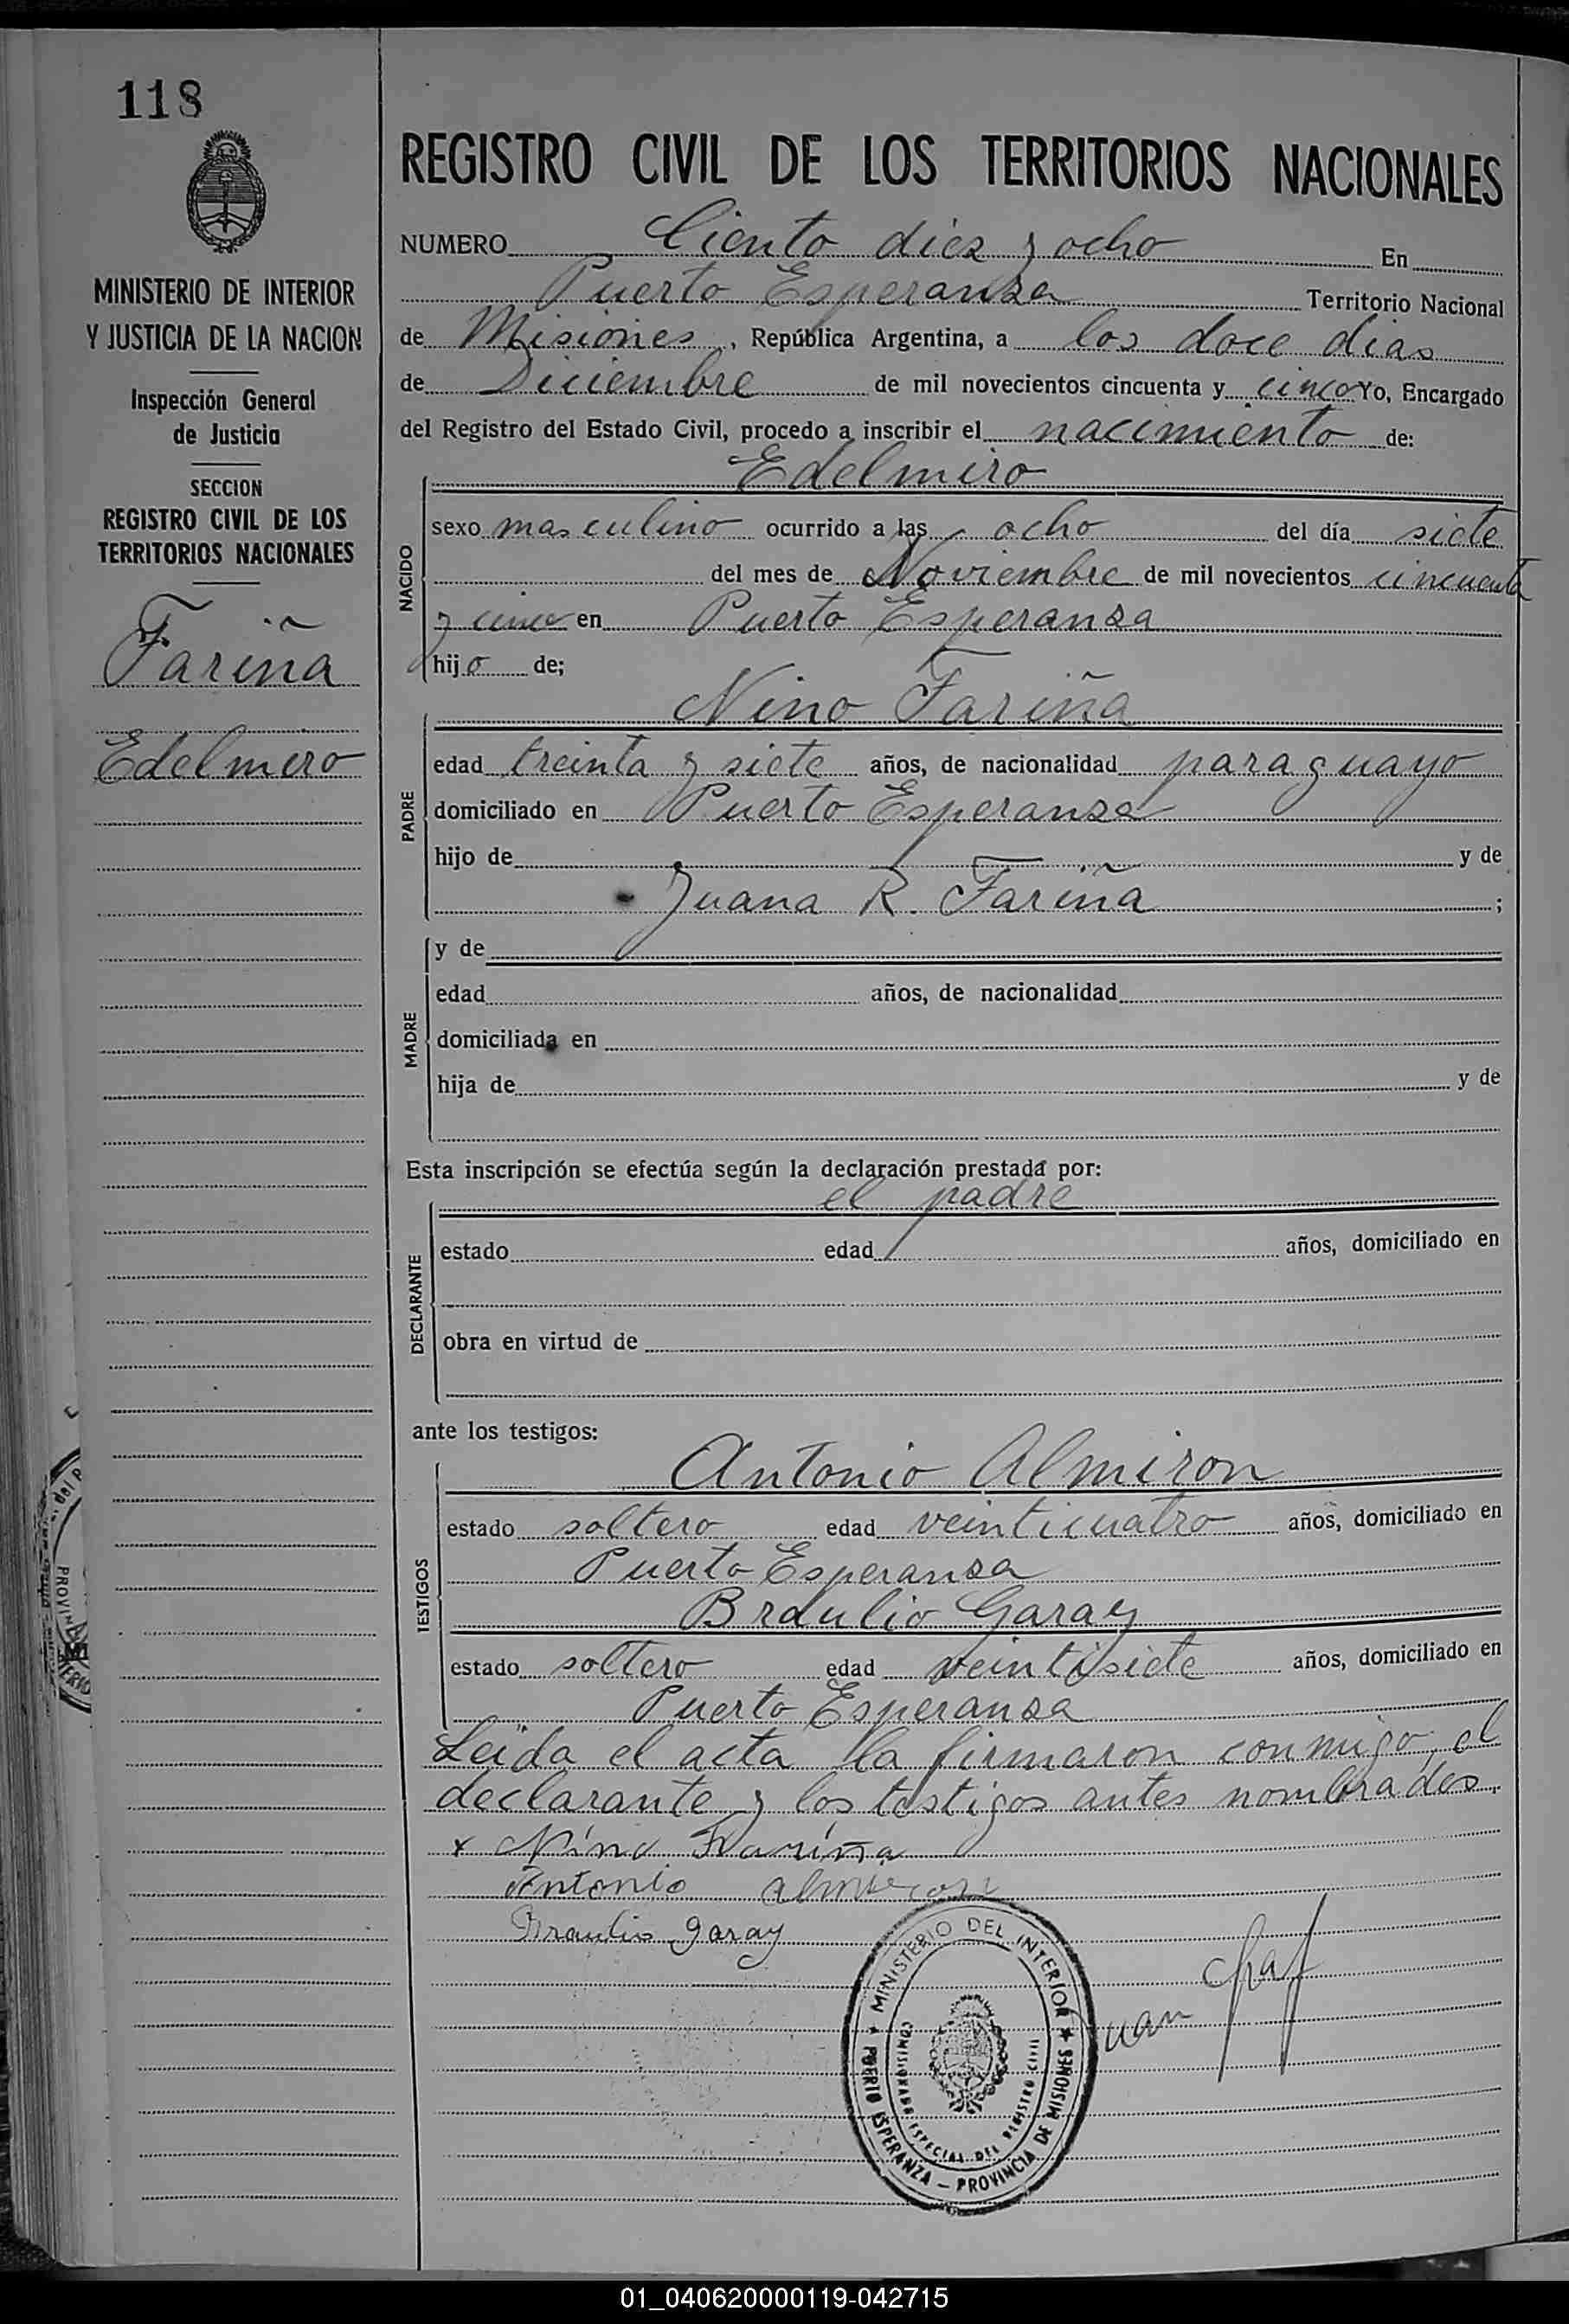 118
MINISTERIO DE INTERIOR
Y JUSTICIA DE LA NACION
Inspección General
de Justicia
SECCION
REGISTRO CIVIL DE LOS
TERRITORIOS NACIONALES
Fariña
Edelmiro
REGISTRO CIVIL DE LOS TERRITORIOS NACIONALES
NUMERO Ciento diez y ocho En
Puerto Esperanza Territorio Nacional
de Misiones, República Argentina, a los doce dias
de Diciembre de mil novecientos cincuenta y cinco Yo, Encargado
del Registro del Estado Civil, procedo a inscribir el nacimiento de:
NACIDO
Edelmiro
sexo masculino ocurrido a las ocho del día siete
del mes de Noviembre de mil novecientos cincuenta
y cinco en Puerto Esperanza
hijo de;
PADRE
Nino Fariña
edad treinta y siete años, de nacionalidad paraguayo
domiciliado en Puerto Esperanza
hijo de y de
Juana R. Fariña ;
MADRE
y de
edad años, de nacionalidad
domiciliada en
hija de y de
Esta inscripción se efectúa según la declaración prestada por:
DECLARANTE
el padre
estado edad años, domiciliado en
obra en virtud de
ante los testigos:
TESTIGOS
Antonio Almiron
estado soltero edad veinticuatro años, domiciliado en
Puerto Esperanza
Braulio Garay
estado soltero edad veintisiete años, domiciliado en
Puerto Esperanza
Leída el acta la firmaron conmigo, el
declarante y los testigos antes nombrados.
x Nino Fariña
Antonio almiron
Braulio garay
MINISTERIO DEL INTERIOR
COMISIONADO ESPECIAL DEL REGISTRO CIVIL
PUERTO ESPERANZA - PROVINCIA DE MISIONES
Juan
01_040620000119-042715